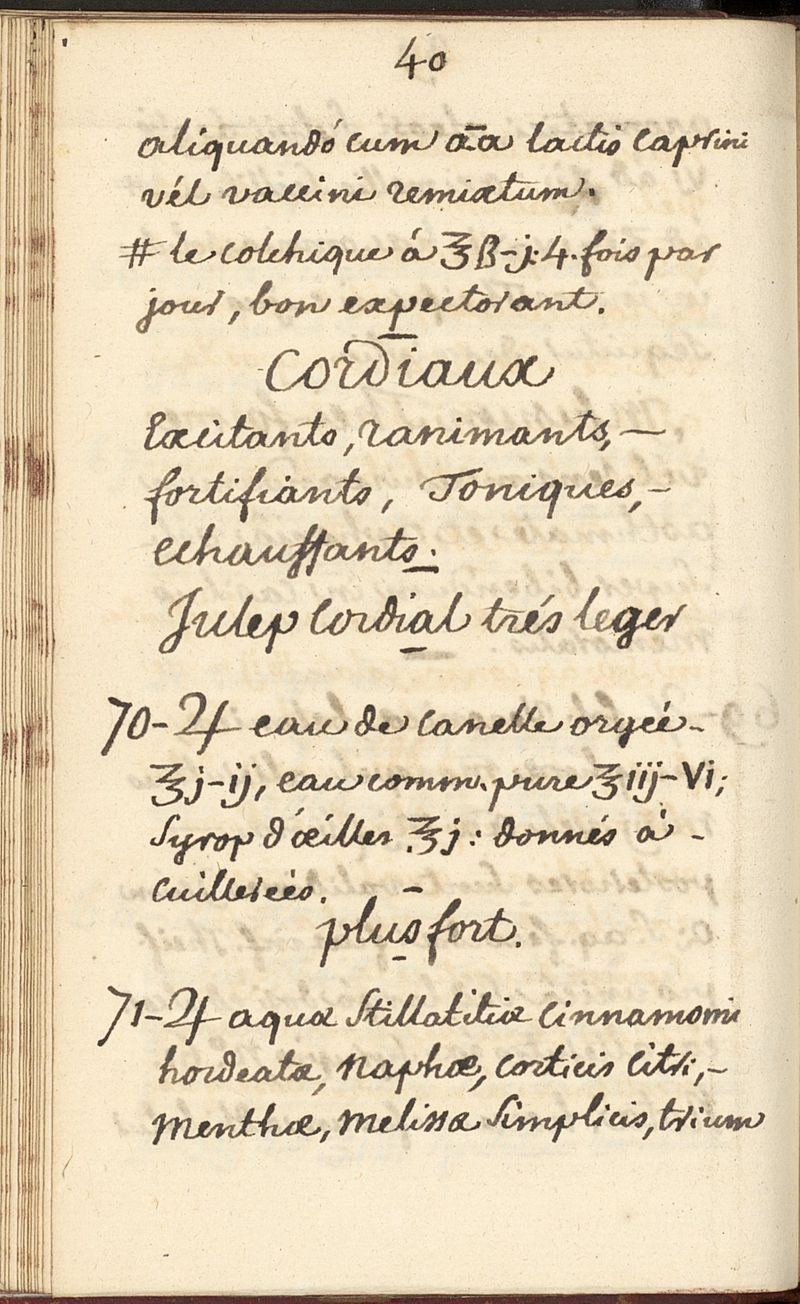 40
aliquandó cum āa lactis caprini
vél vaccini remixtum.
# le colchique á ℥ß-j: 4. fois par
jour, bon expectorant.
Cordiaux
Excitants, ranimants, —
fortifiants, Toniques, -
echauffants.
Julep Cordial trés leger
70-♃ eau de canelle orgeé -
℥j-ij, eau comm. pure ℥iij-vi;
Syrop d'œillet ℥j: donnés à -
cuillereés.
plus fort.
71-♃ aquæ Stillatitiæ Cinnamomi
hordeatæ, naphæ, corticis Citri, -
Menthæ, Melissæ Simplicis, trium